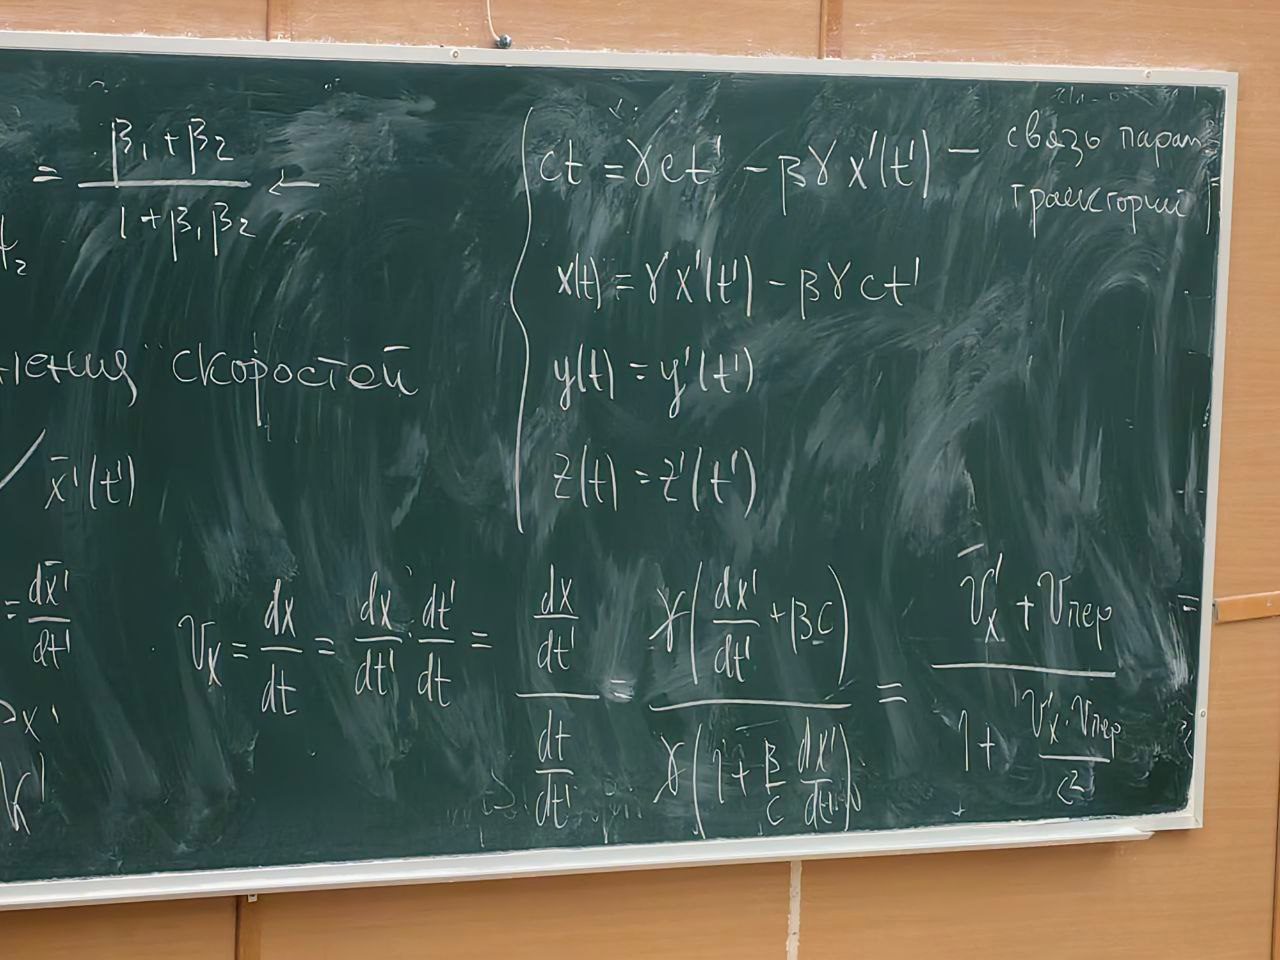 = β₁+β₂ / 1+β₁β₂ ←
скоростей
x̄'(t')
= dx̄'/dt'
ct = γct' - βγx'(t') — связь парам.
траекторий
x(t) = γx'(t') - βγct'
y(t) = y'(t')
z(t) = z'(t')
Vx = dx/dt = dx/dt' · dt'/dt = (dx/dt')/(dt/dt') = γ(dx'/dt' + βc)/γ(1 + β/c dx'/dt') = (V'x + Vпер)/(1 + V'x·Vпер/c²) =